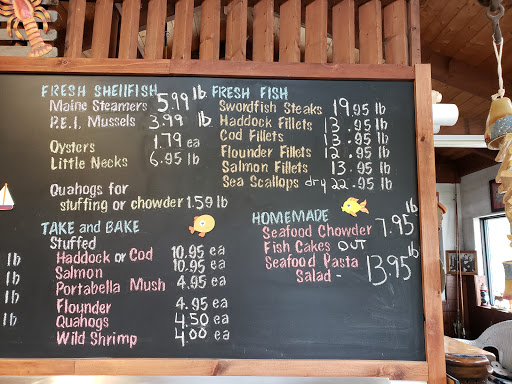 FRESH SHELLFISH
Maine Steamers 5.99 lb
P.E.I. Mussels 3.99 lb
Oysters 1.79 ea
Little Necks 6.95 lb
Quahogs for
stuffing or chowder 1.59 lb
TAKE and BAKE
Stuffed
Haddock or Cod 10.95 ea
Salmon 10.95 ea
Portabella Mush 4.95 ea
Flounder 4.95 ea
Quahogs 4.50 ea
Wild Shrimp 4.00 ea
FRESH FISH
Swordfish Steaks 19.95 lb
Haddock Fillets 13.95 lb
Cod Fillets 13.95 lb
Flounder Fillets 12.95 lb
Salmon Fillets 13.95 lb
Sea Scallops dry 22.95 lb
HOMEMADE
Seafood Chowder 7.95 lb
Fish Cakes OUT
Seafood Pasta
Salad - 13.95 lb
lb
lb
lb
lb